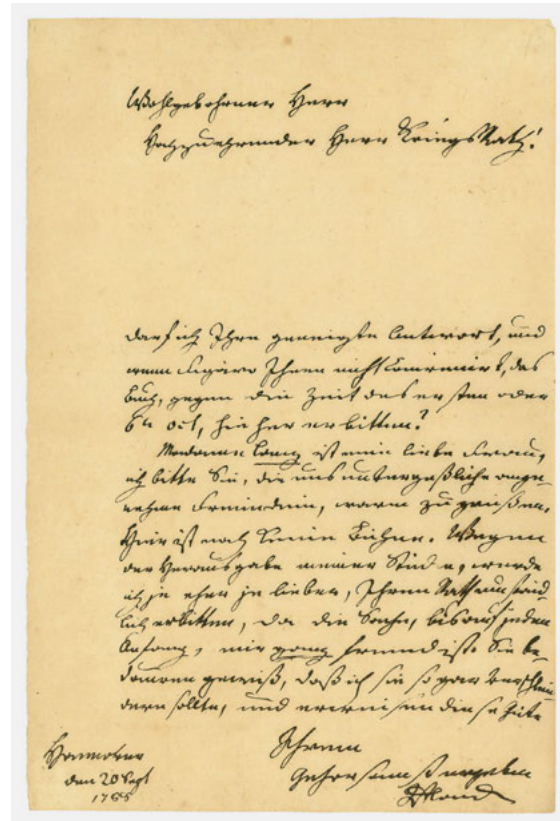 Wohlgebohrner Herr
Hochzuehrender Herr KriegsRath!
Darf ich Ihre geneigte Antwort, und
wenn Figaro Ihnen nicht convenirt, das
Buch, gegen die Zeit des ersten oder
6tn Oct, hieher erbitten?
Madame ist eine liebe Frau,
ich bitte Sie, die uns unvergeßliche ange-
nehme Freundin, warm zu grüßen.
Hier ist noch keine Bühne. Wegen
der Herausgabe meiner Stücke, werde
ich je eher je lieber, Ihren Rath
lich erbitten, da die Sache, bis auf jeden
Anfang, mir ganz fremd ist. Sie be-
dauren gewiß, daß ich sie so gar verschleu-
dern sollte, und erweisen diese Güte
Ihrem
Gehorsamst ergeben
Iffland
Hannover
den 20 Sept